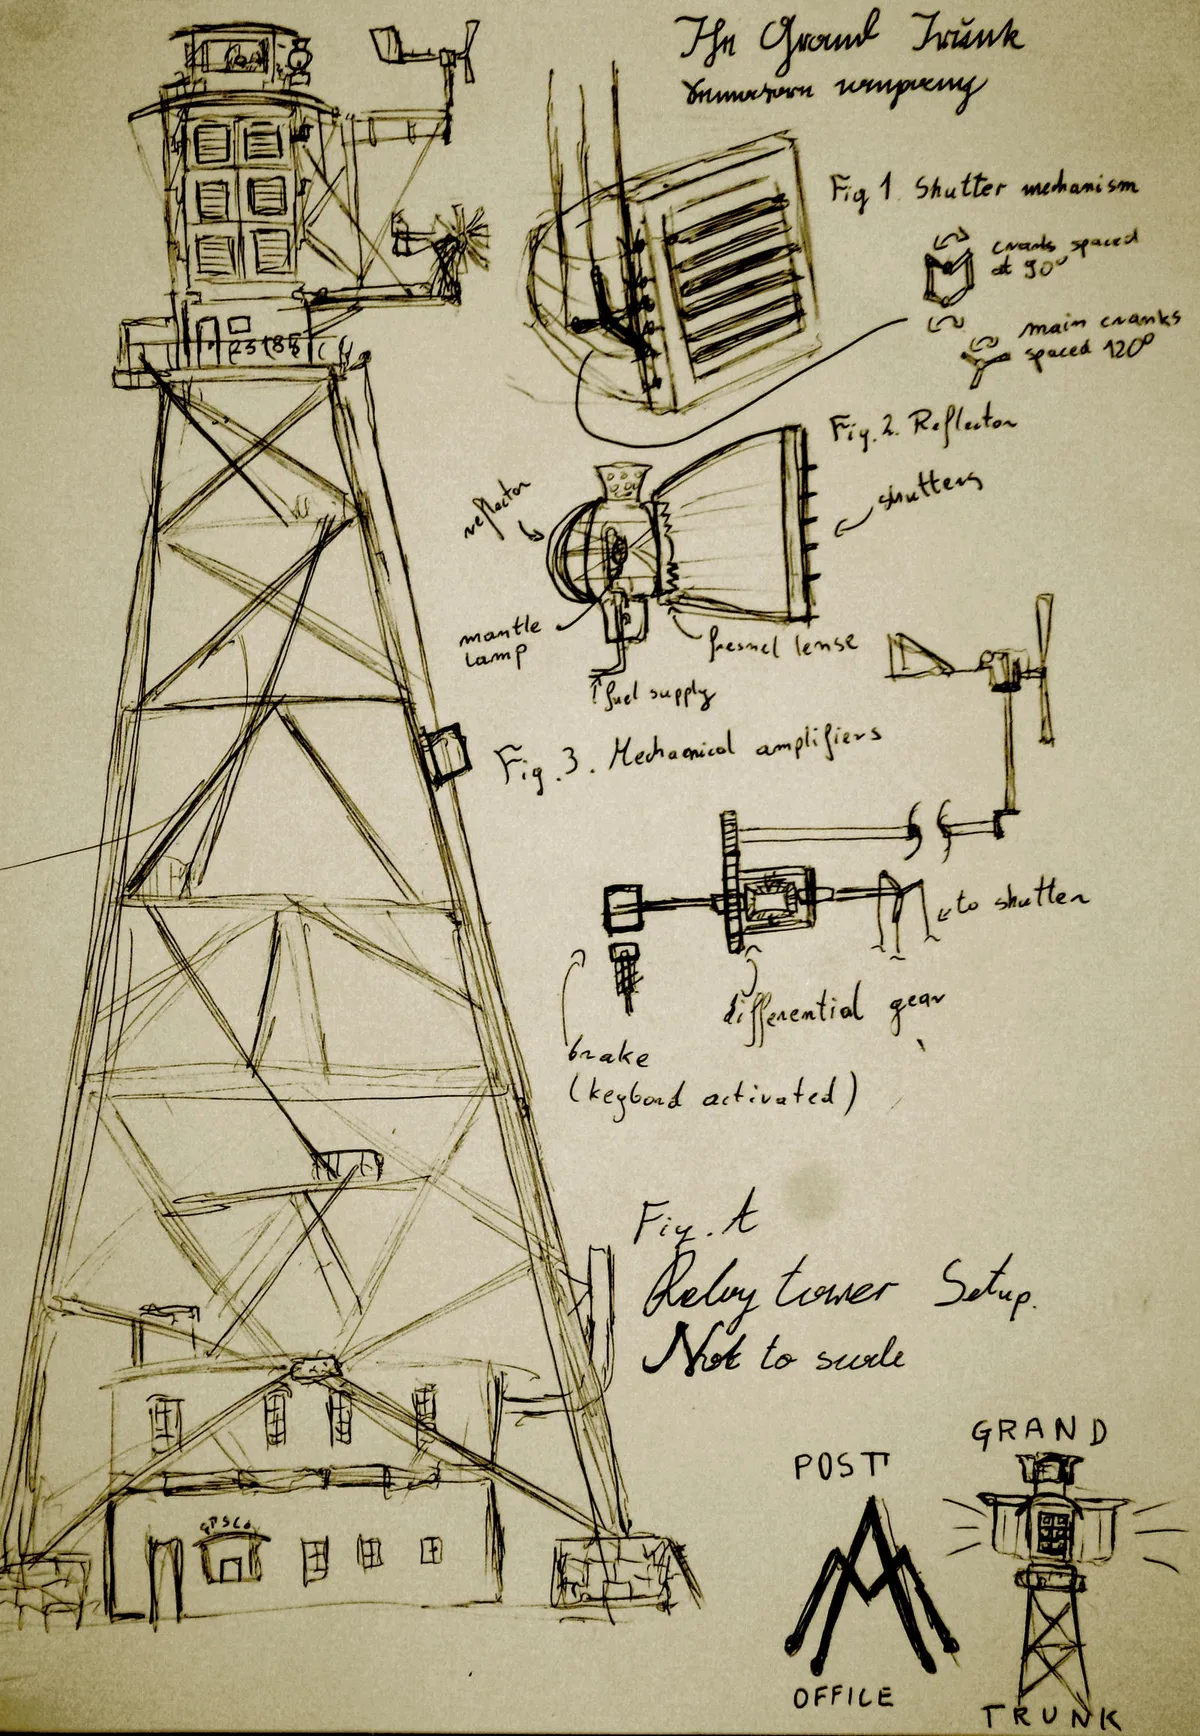 The Grand Trunk
Semaphore company
Fig 1. Shutter mechanism
cranks spaced
at 90°
main cranks
spaced 120°
Fig. 2. Reflector
reflector
shutters
mantle
lamp
fresnel lense
fuel supply
Fig. 3. Mechanical amplifiers
to shutter
differential gear
brake
(keybord activated)
Fig. A
Relay tower Setup.
Not to scale
GTSCo
POST
OFFICE
GRAND
TRUNK